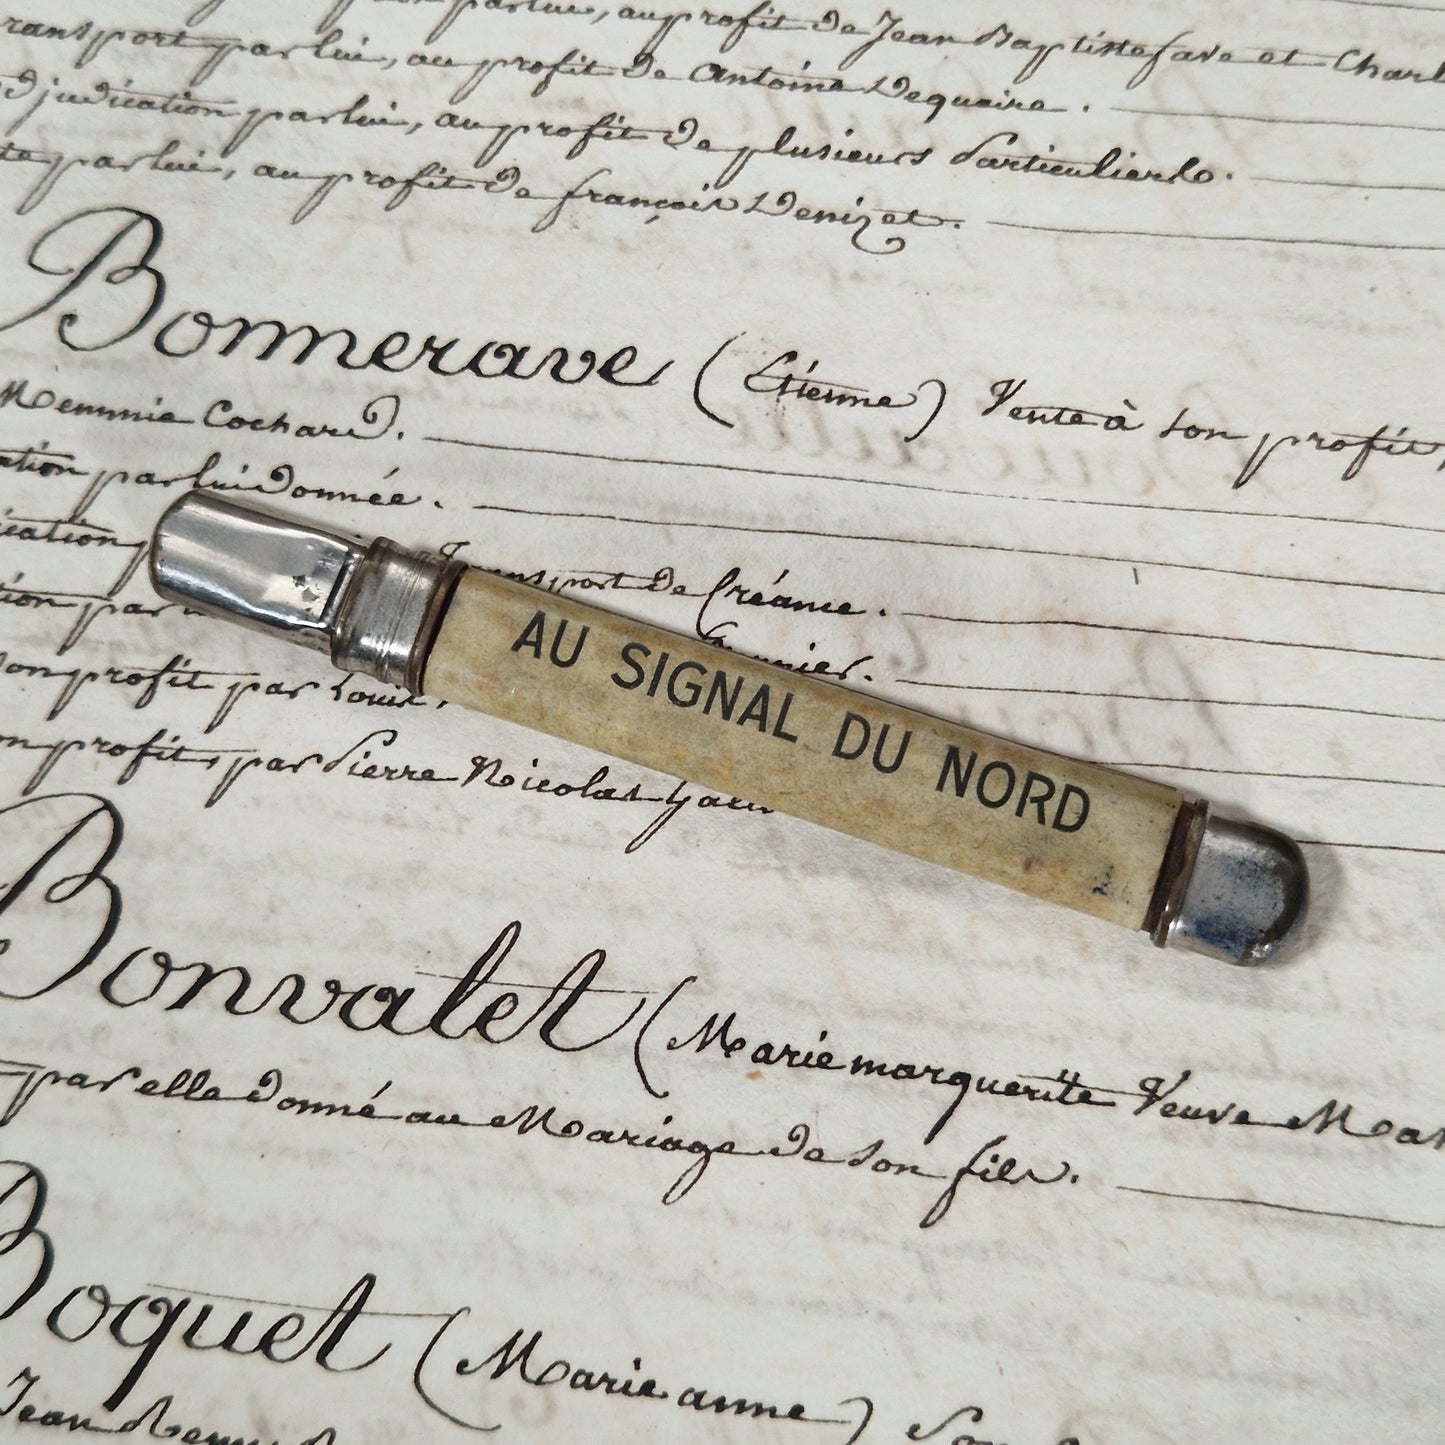 parlui, au profit de Jean Baptiste fave et Charl
ransport par lui, au profit de Antoine Dequaire.
djudication par lui, au profit de plusieurs Particuliers.
te par lui, au profit de françois Denizet.
Bonnerave (Etienne) Vente à son profit,
Memmie Cochard.
ation par lui donnée.
ication
Transport de Créance.
tion par
son profit par Louis,
on profit, par Pierre Nicolas
AU SIGNAL DU NORD
Bonvalet (Marie marguerite Veuve
par elle donné au Mariage de son fils.
Boquet (Marie anne)
Jean